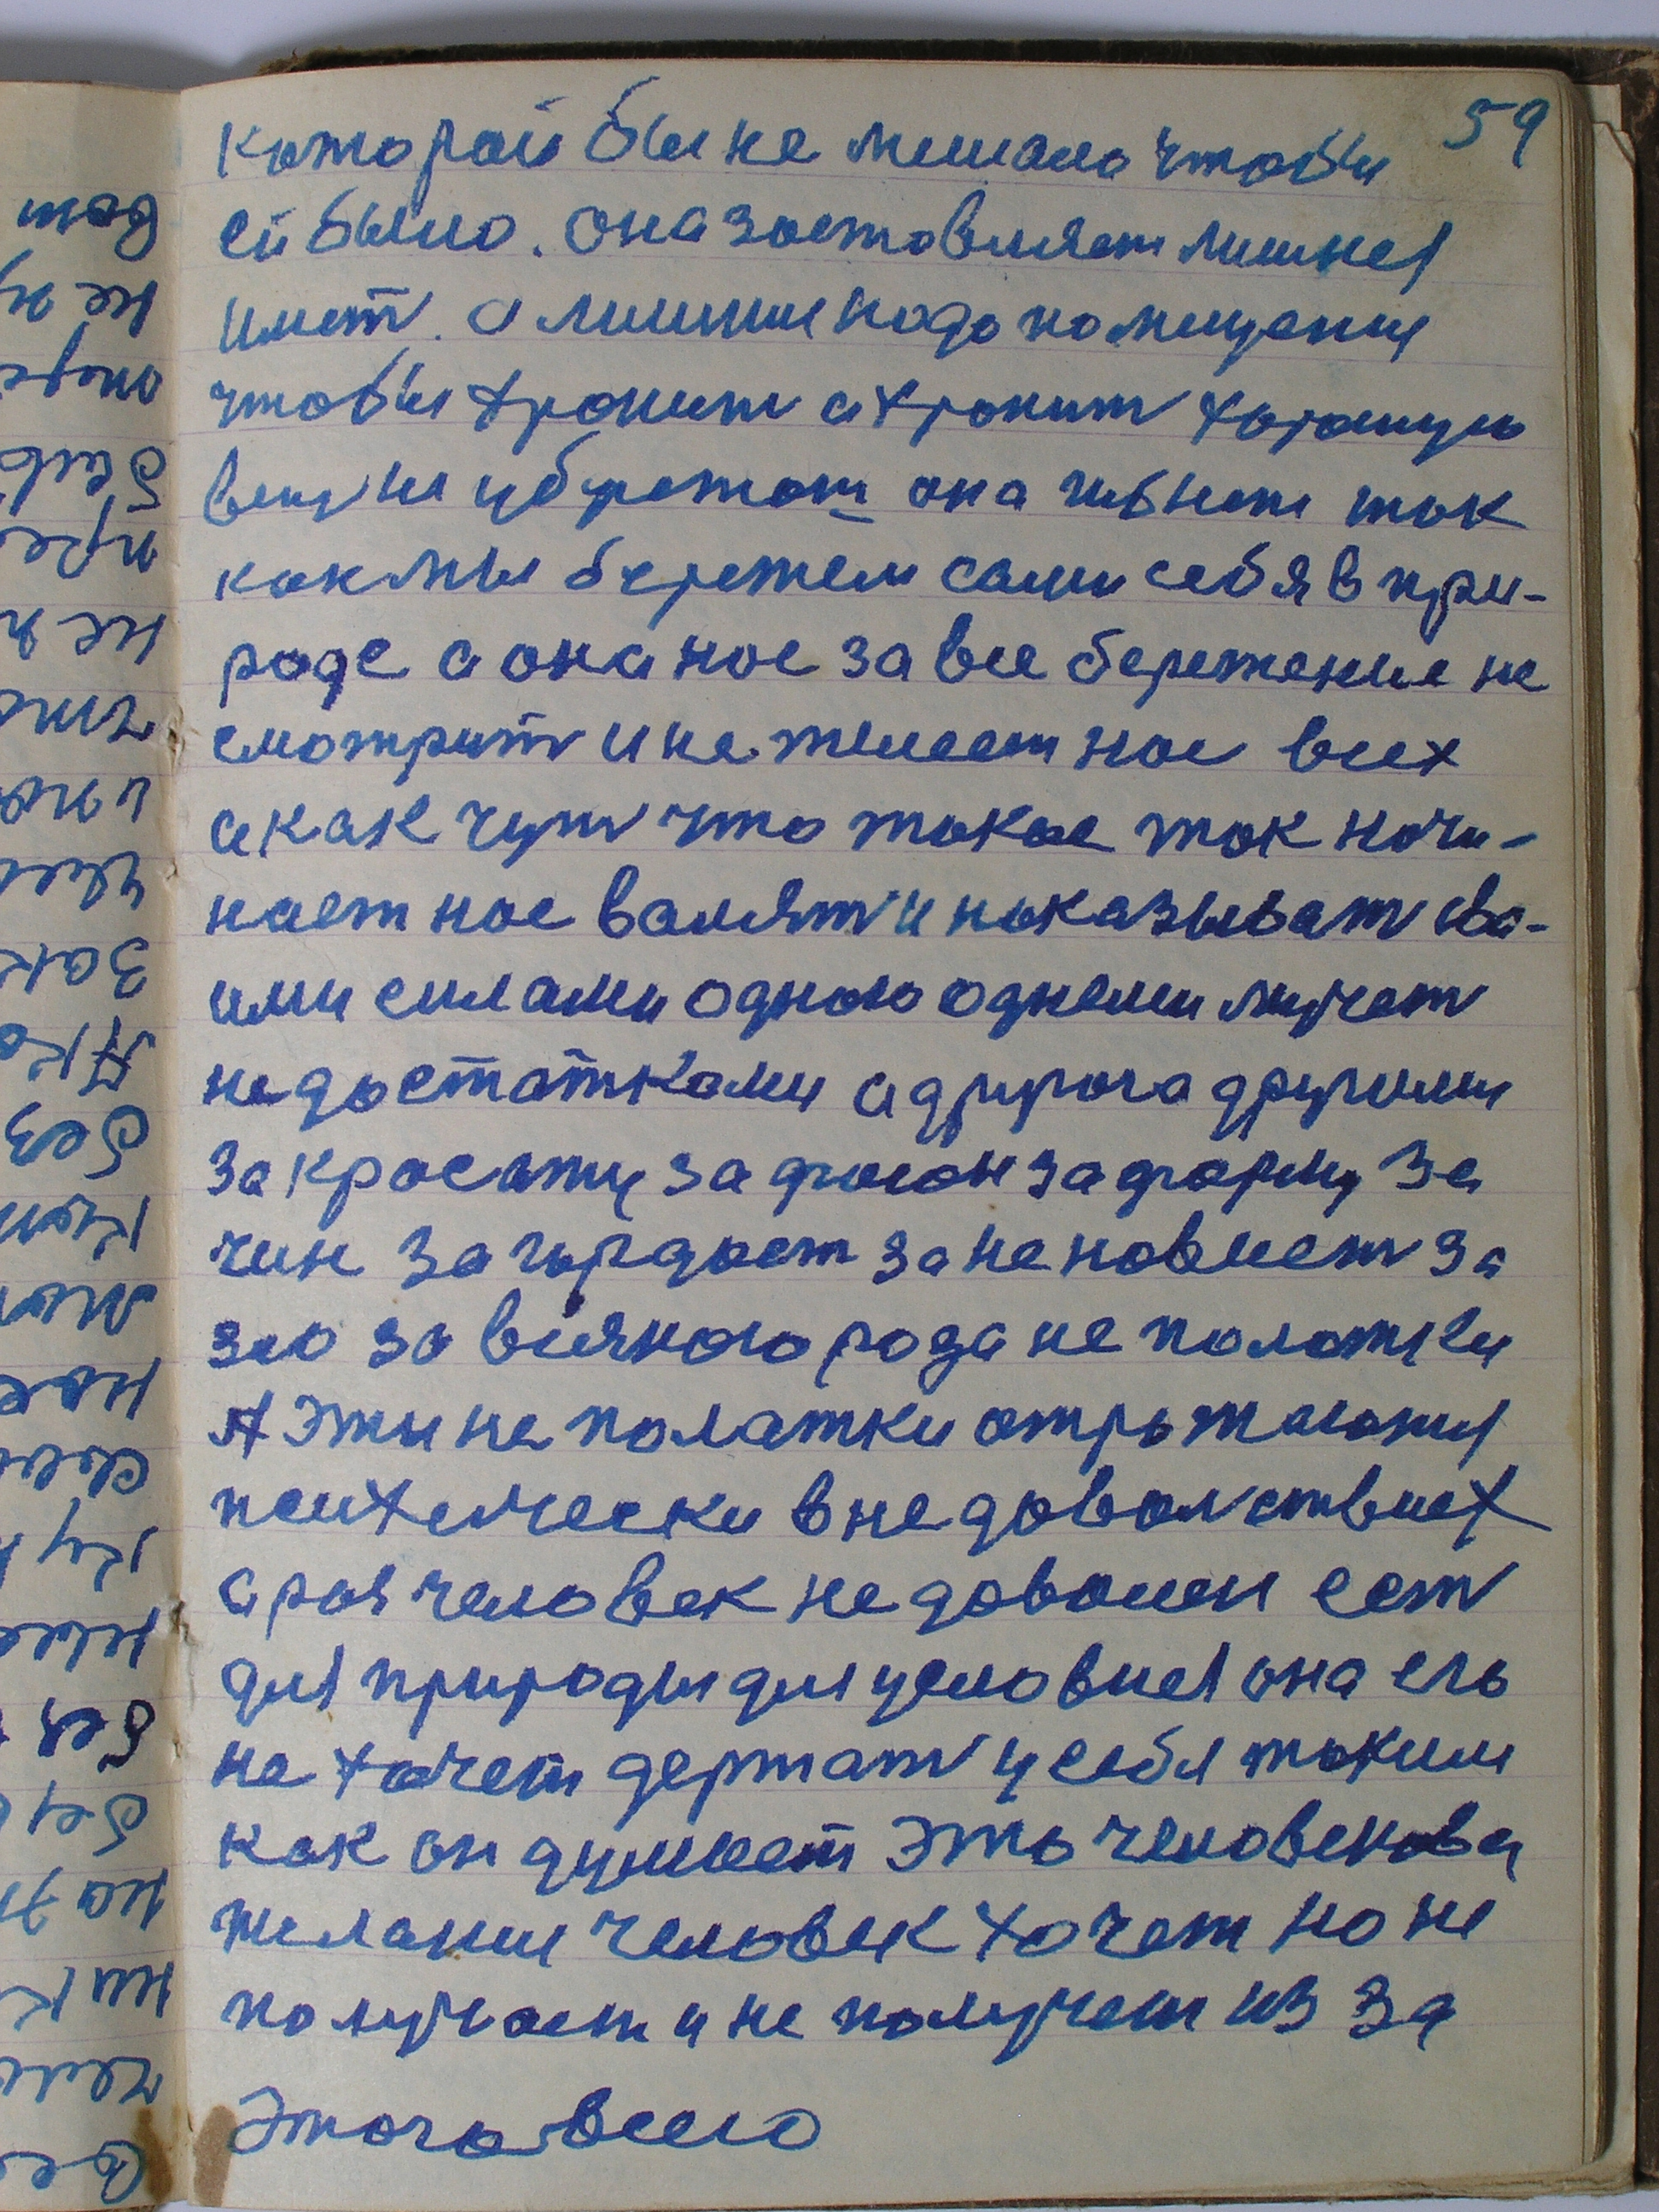 59
которай бы не мешала чтобы
ей было. она заставляет лишнея
имет. а лишние надо помещения
чтобы хронит а хронит харошую
вещ не убережот она гибнет так
как мы бережем сами себя в при-
роде а она нас за все бережение не
смотрит и не жалеет нас всех
а как чут что такое так начи-
нает нас валят и наказыват сва-
ими силами одного одними мучет
недостатками а другога другими
за красоту за фасон за форму за
чин за гордост за неновист за
зло за всякого рода не полатки
А эти не палатки отроженния
психически в недоволствиех
а раз человек недоволен ест
для природы для условиея она его
не хочет держат у себя таким
как он думает это человекова
желание человек хочет но не
получает и не получет из за
этого всего
вот
не
без